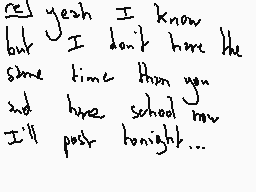 re] yeah I know
but I don't have the
same time than you
and have school now
I'll post tonight...